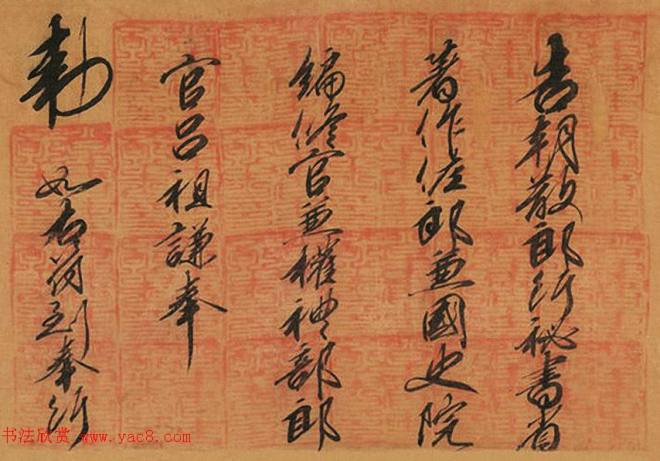 告朝散郎行秘書省
著作佐郎兼國史院
編脩官兼權禮部郎
官呂祖謙奉
勅
如右符到奉行
书法欣赏 www.yac8.com